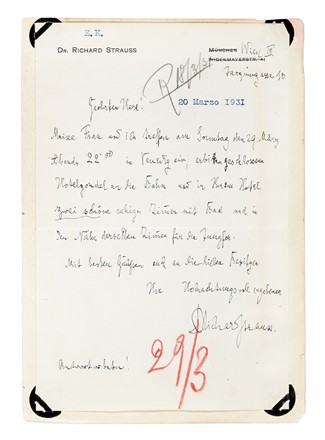 E. K.
DR. RICHARD STRAUSS
MÜNCHEN Wien III
Jacquingasse 10
R 18/3/31
20 Marzo 1931
Geehrter Herr!
Meine Frau und ich treffen am Sonntag den 29. März
Abends 22 00 in Venedig ein, erbitten geschlossene
Hotelgondel an die Bahn und in Ihrem Hotel
zwei schöne ruhige Zimmer mit Bad und in
der Nähe derselben Zimmer für die Jungfer.
Mit besten Grüßen auch an die lieben Besitzer
Ihr Hochachtungsvoll ergebener
DRichardStrauss.
Antwort erbeten!
29/3